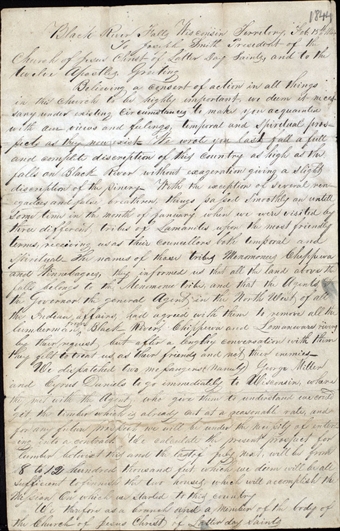 1844
Black River Falls Wisconsin Territory, Feb 15th 1844
To Joseph Smith President of the
Church of Jesus Christ of Latter Day Saints, and to the
twelve Apostles Greeting
Believing a consert of action in all things
in this Church to be highly important we deem it necc
sary under existing Circumstances to make you acquainted
with our views and feelings, temporal and Spiritual pros
pects as they now exist. We wrote you last fall a full
and complete discription of this country as high as the
falls on Black River without exageration giving a slight
discription of the pinery. With the exception of several ren
egades and false breathren things passed Smoothly on untill
Some time in the month of January when we were visited by
three different tribes of Lamanites upon the most friendly
terms, receiving us as their Councillors both temporal and
Spiritual. The names of those tribes Mnomonies Chippiwa
and Winnebagoes they informed us that all the land above the
falls belongs to the Mnomonie tribe and that the Agents &
the Governor the general Agent in the North West, of all
the Indian affairs, had agreed with them to remove all the
lumbermen from Black River Chippiwa and Lomanwais rivers
by their request, but after a lengthy conversation with them
they felt to treat us as their friends and not their enemies
We dispatched two messengers (namely) George Miller
and Cyrus Daniels to go immediately to Wisconsin, where
they met with the Agent, who gave them to understand we could
get the timber which is already cut at a reasonable rate, and
for any future prospect we will be under the necessity of enter
ing into a contract. We calculate the present prospect for
lumber between this and the last of July next, will be from
8 to 12 hundred thousand feet which we deem will be all
sufficient to finish the two houses, which will accomplish the
mission on which we started to this country.
We therefore as a branch and a member of the body of
the Church of Jesus Christ of Latter day Saints